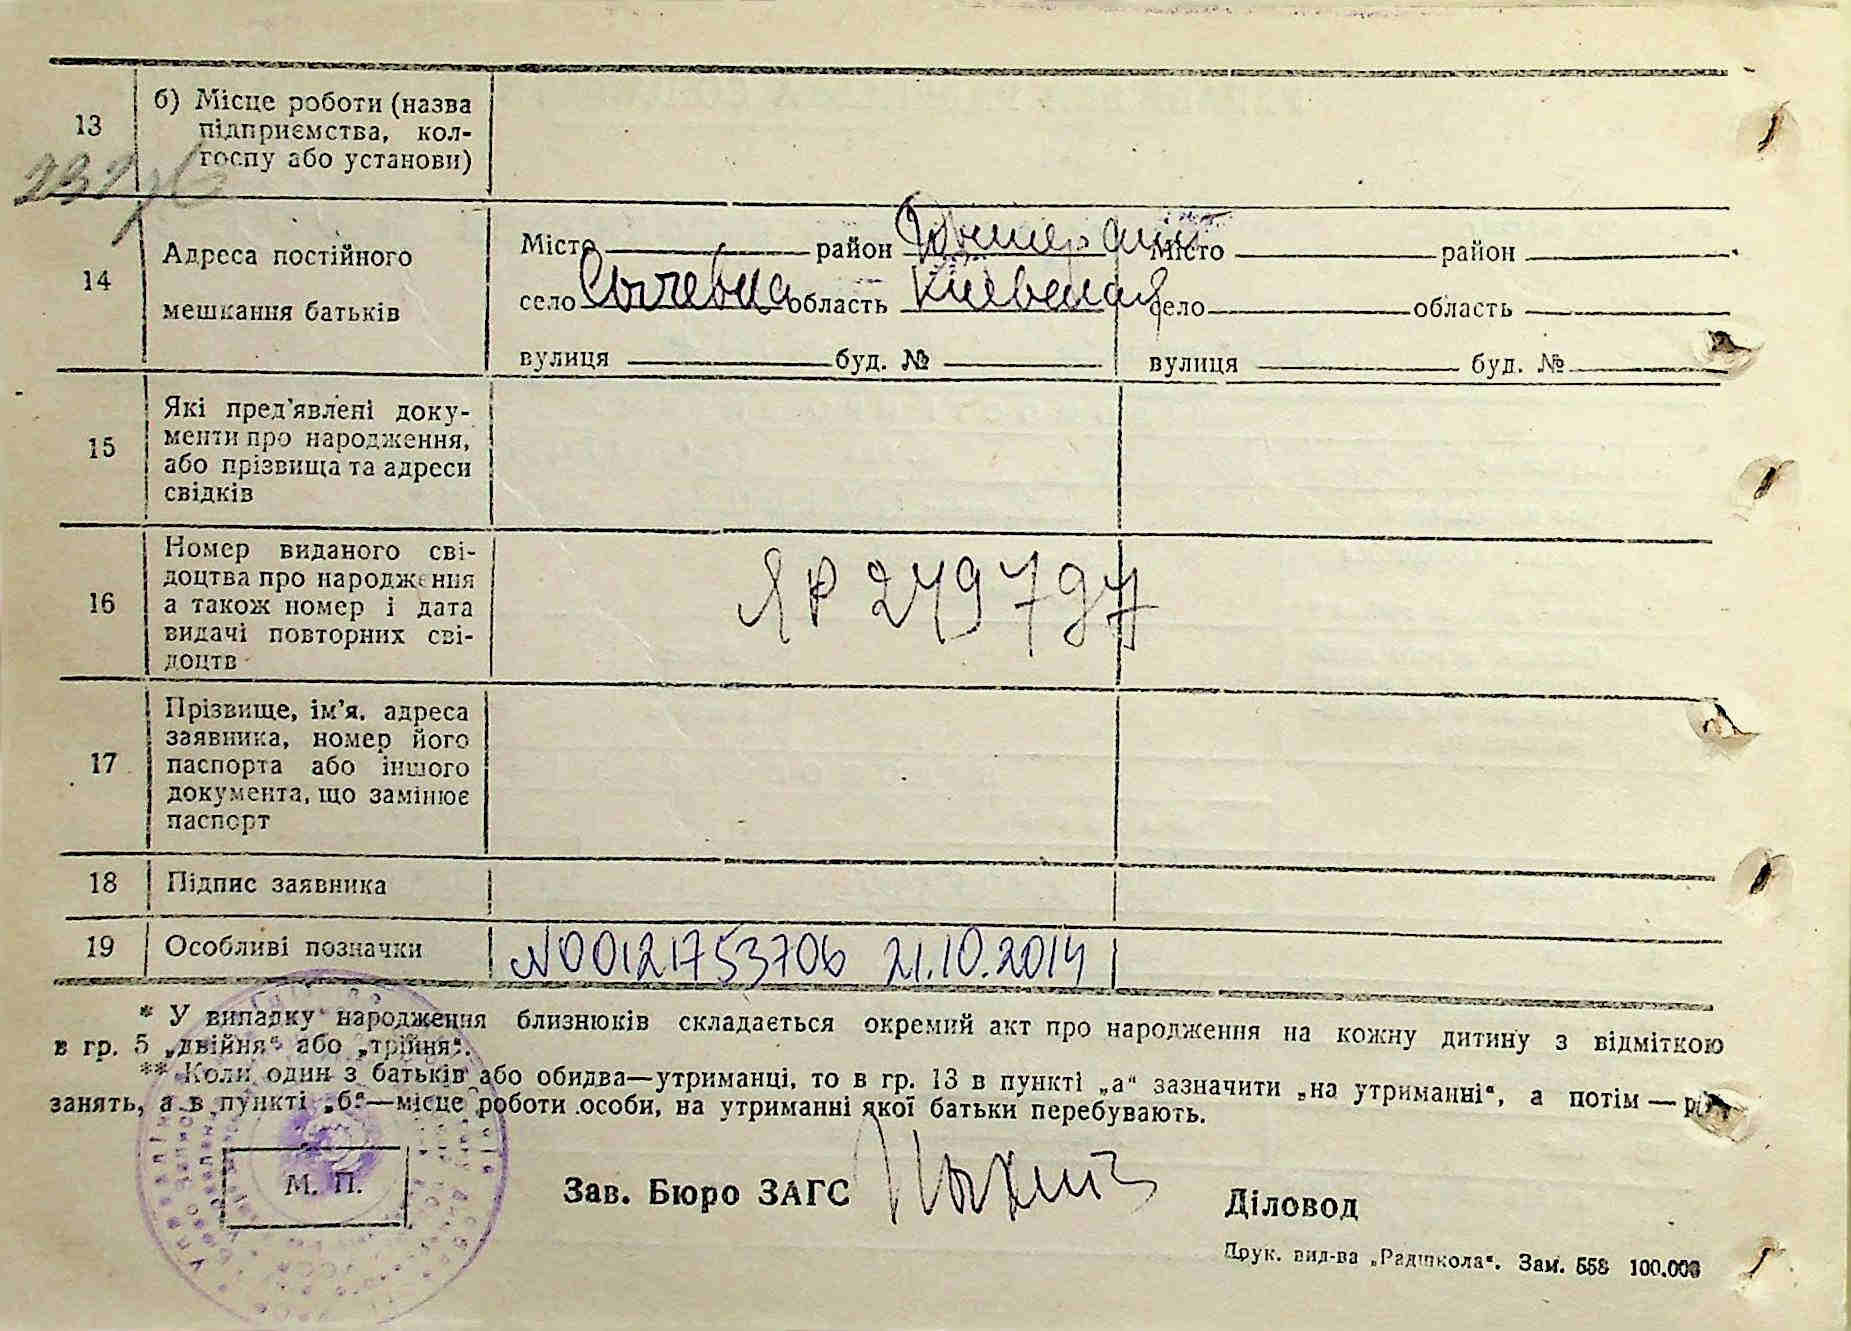 13 б) Місце роботи (назва
підприємства, кол-
госпу або установи)
14 Адреса постійного
мешкання батьків
Місто район Дымерский
село Сычевка область Киевская
вулиця буд. №
Місто район
село область
вулиця буд. №
15 Які пред'явлені доку-
менти про народження,
або прізвища та адреси
свідків
16 Номер виданого сві-
доцтва про народження
а також номер і дата
видачі повторних сві-
доцтв
ЯР 249797
17 Прізвище, ім'я, адреса
заявника, номер його
паспорта або іншого
документа, що замінює
паспорт
18 Підпис заявника
19 Особливі позначки N00121753706 21.10.2014
* У випадку народження близнюків складається окремий акт про народження на кожну дитину з відміткою
в гр. 5 „двійня“ або „трійня“.
** Коли один з батьків або обидва—утриманці, то в гр. 13 в пункті „а“ зазначити „на утриманні“, а потім —
занять, а в пункті „б“—місце роботи особи, на утриманні якої батьки перебувають.
М. П.
Зав. Бюро ЗАГС
Діловод
Друк. вид-ва „Радшкола“. Зам. 558 100.000